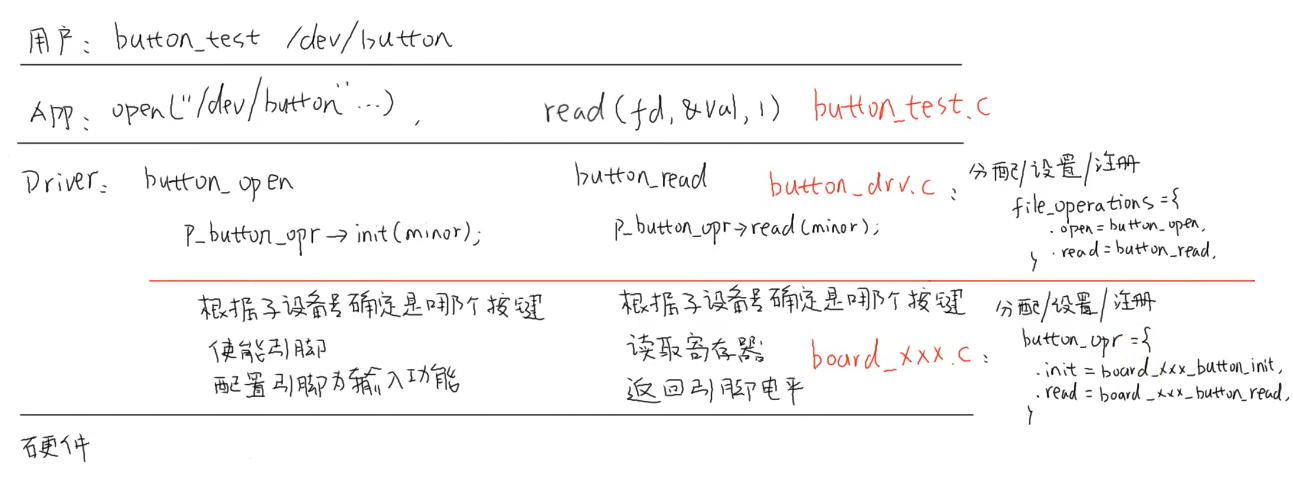 用户: button_test /dev/button
App: open("/dev/button"...), read(fd, &val, 1) button_test.c
Driver: button_open button_read button_drv.c:
p_button_opr→init(minor); p_button_opr→read(minor);
分配/设置/注册
file_operations={
.open=button_open,
.read=button_read,
}
根据子设备号确定是哪个按键 根据子设备号确定是哪个按键
使能引脚 读取寄存器 board_xxx.c:
配置引脚为输入功能 返回引脚电平
分配/设置/注册
button_opr={
.init=board_xxx_button_init,
.read=board_xxx_button_read,
}
硬件